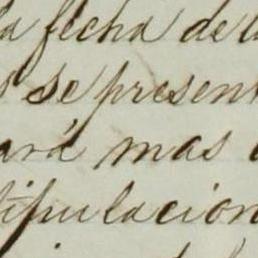 la fecha de la
s se present
ará mas
tipulacion